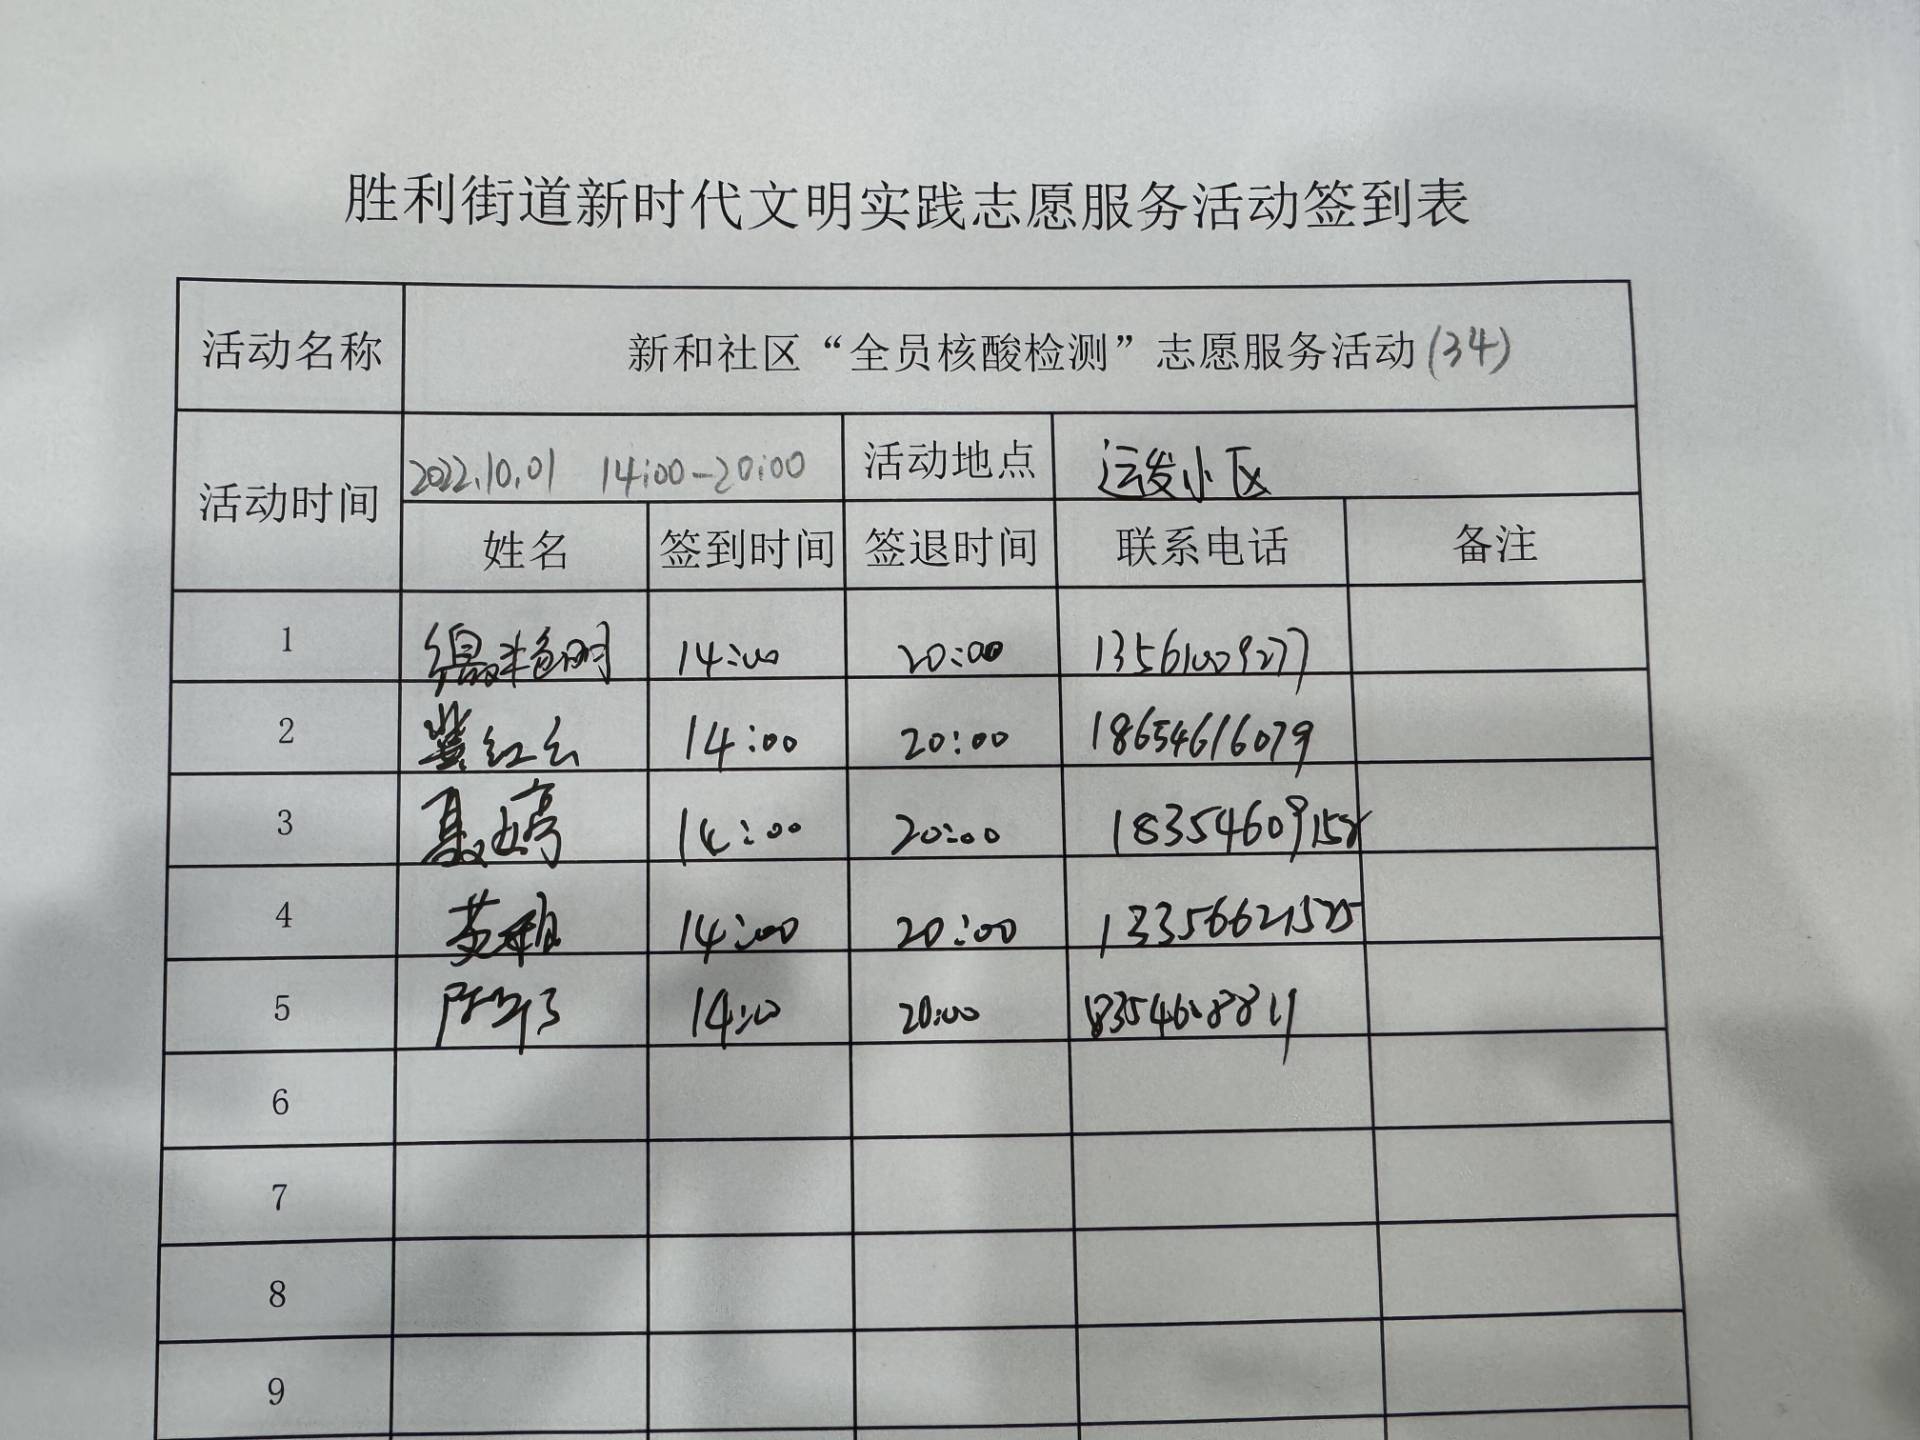 胜利街道新时代文明实践志愿服务活动签到表
活动名称 新和社区“全员核酸检测”志愿服务活动(34)
活动时间 2022.10.01 14:00-20:00 活动地点 运发小区
姓名 签到时间 签退时间 联系电话 备注
1 14:00 20:00 13561009277
2 冀红云 14:00 20:00 18654616079
3 聂婷 14:00 20:00
4 14:00 20:00
5 14:00 20:00
6
7
8
9